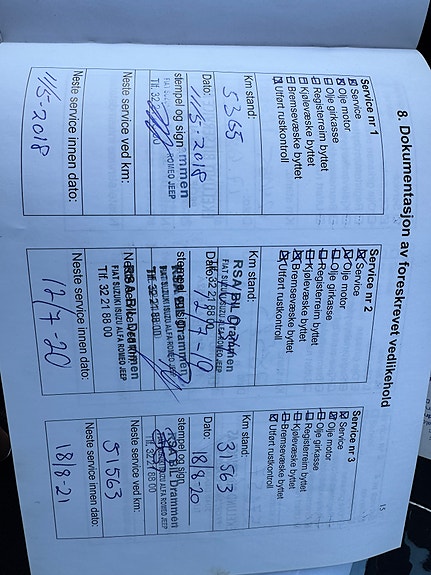 8. Dokumentasjon av foreskrevet vedlikehold
Service nr 1
Service
Olje motor
Olje girkasse
Registerreim byttet
Kjølevæske byttet
Bremsevæske byttet
Utført rustkontroll
Km stand:
5365
Dato: 11/5-2018
stempel og sign
FIAT SUZUKI
ROMEO JEEP
Tlf. 32
Neste service ved km:
Neste service innen dato:
11/5-2018
Service nr 2
Service
Olje motor
Olje girkasse
Registerreim byttet
Kjølevæske byttet
Bremsevæske byttet
Utført rustkontroll
Km stand:
RSA BIL Drammen
FIAT SUZUKI ISUZU ALFA ROMEO JEEP
Tlf. 32 21 88 00
Dato:
stempel og sign
Neste service ved km:
RSA BIL Drammen
FIAT SUZUKI ISUZU ALFA ROMEO JEEP
Tlf. 32 21 88 00
Neste service innen dato:
12/7-20
Service nr 3
Service
Olje motor
Olje girkasse
Registerreim byttet
Kjølevæske byttet
Bremsevæske byttet
Utført rustkontroll
Km stand:
31563
Dato: 18/8-20
stempel og sign
RSA BIL Drammen
FIAT SUZUKI ISUZU ALFA ROMEO JEEP
Tlf. 32 21 88 00
Neste service ved km:
51563
Neste service innen dato:
18/8-21
15